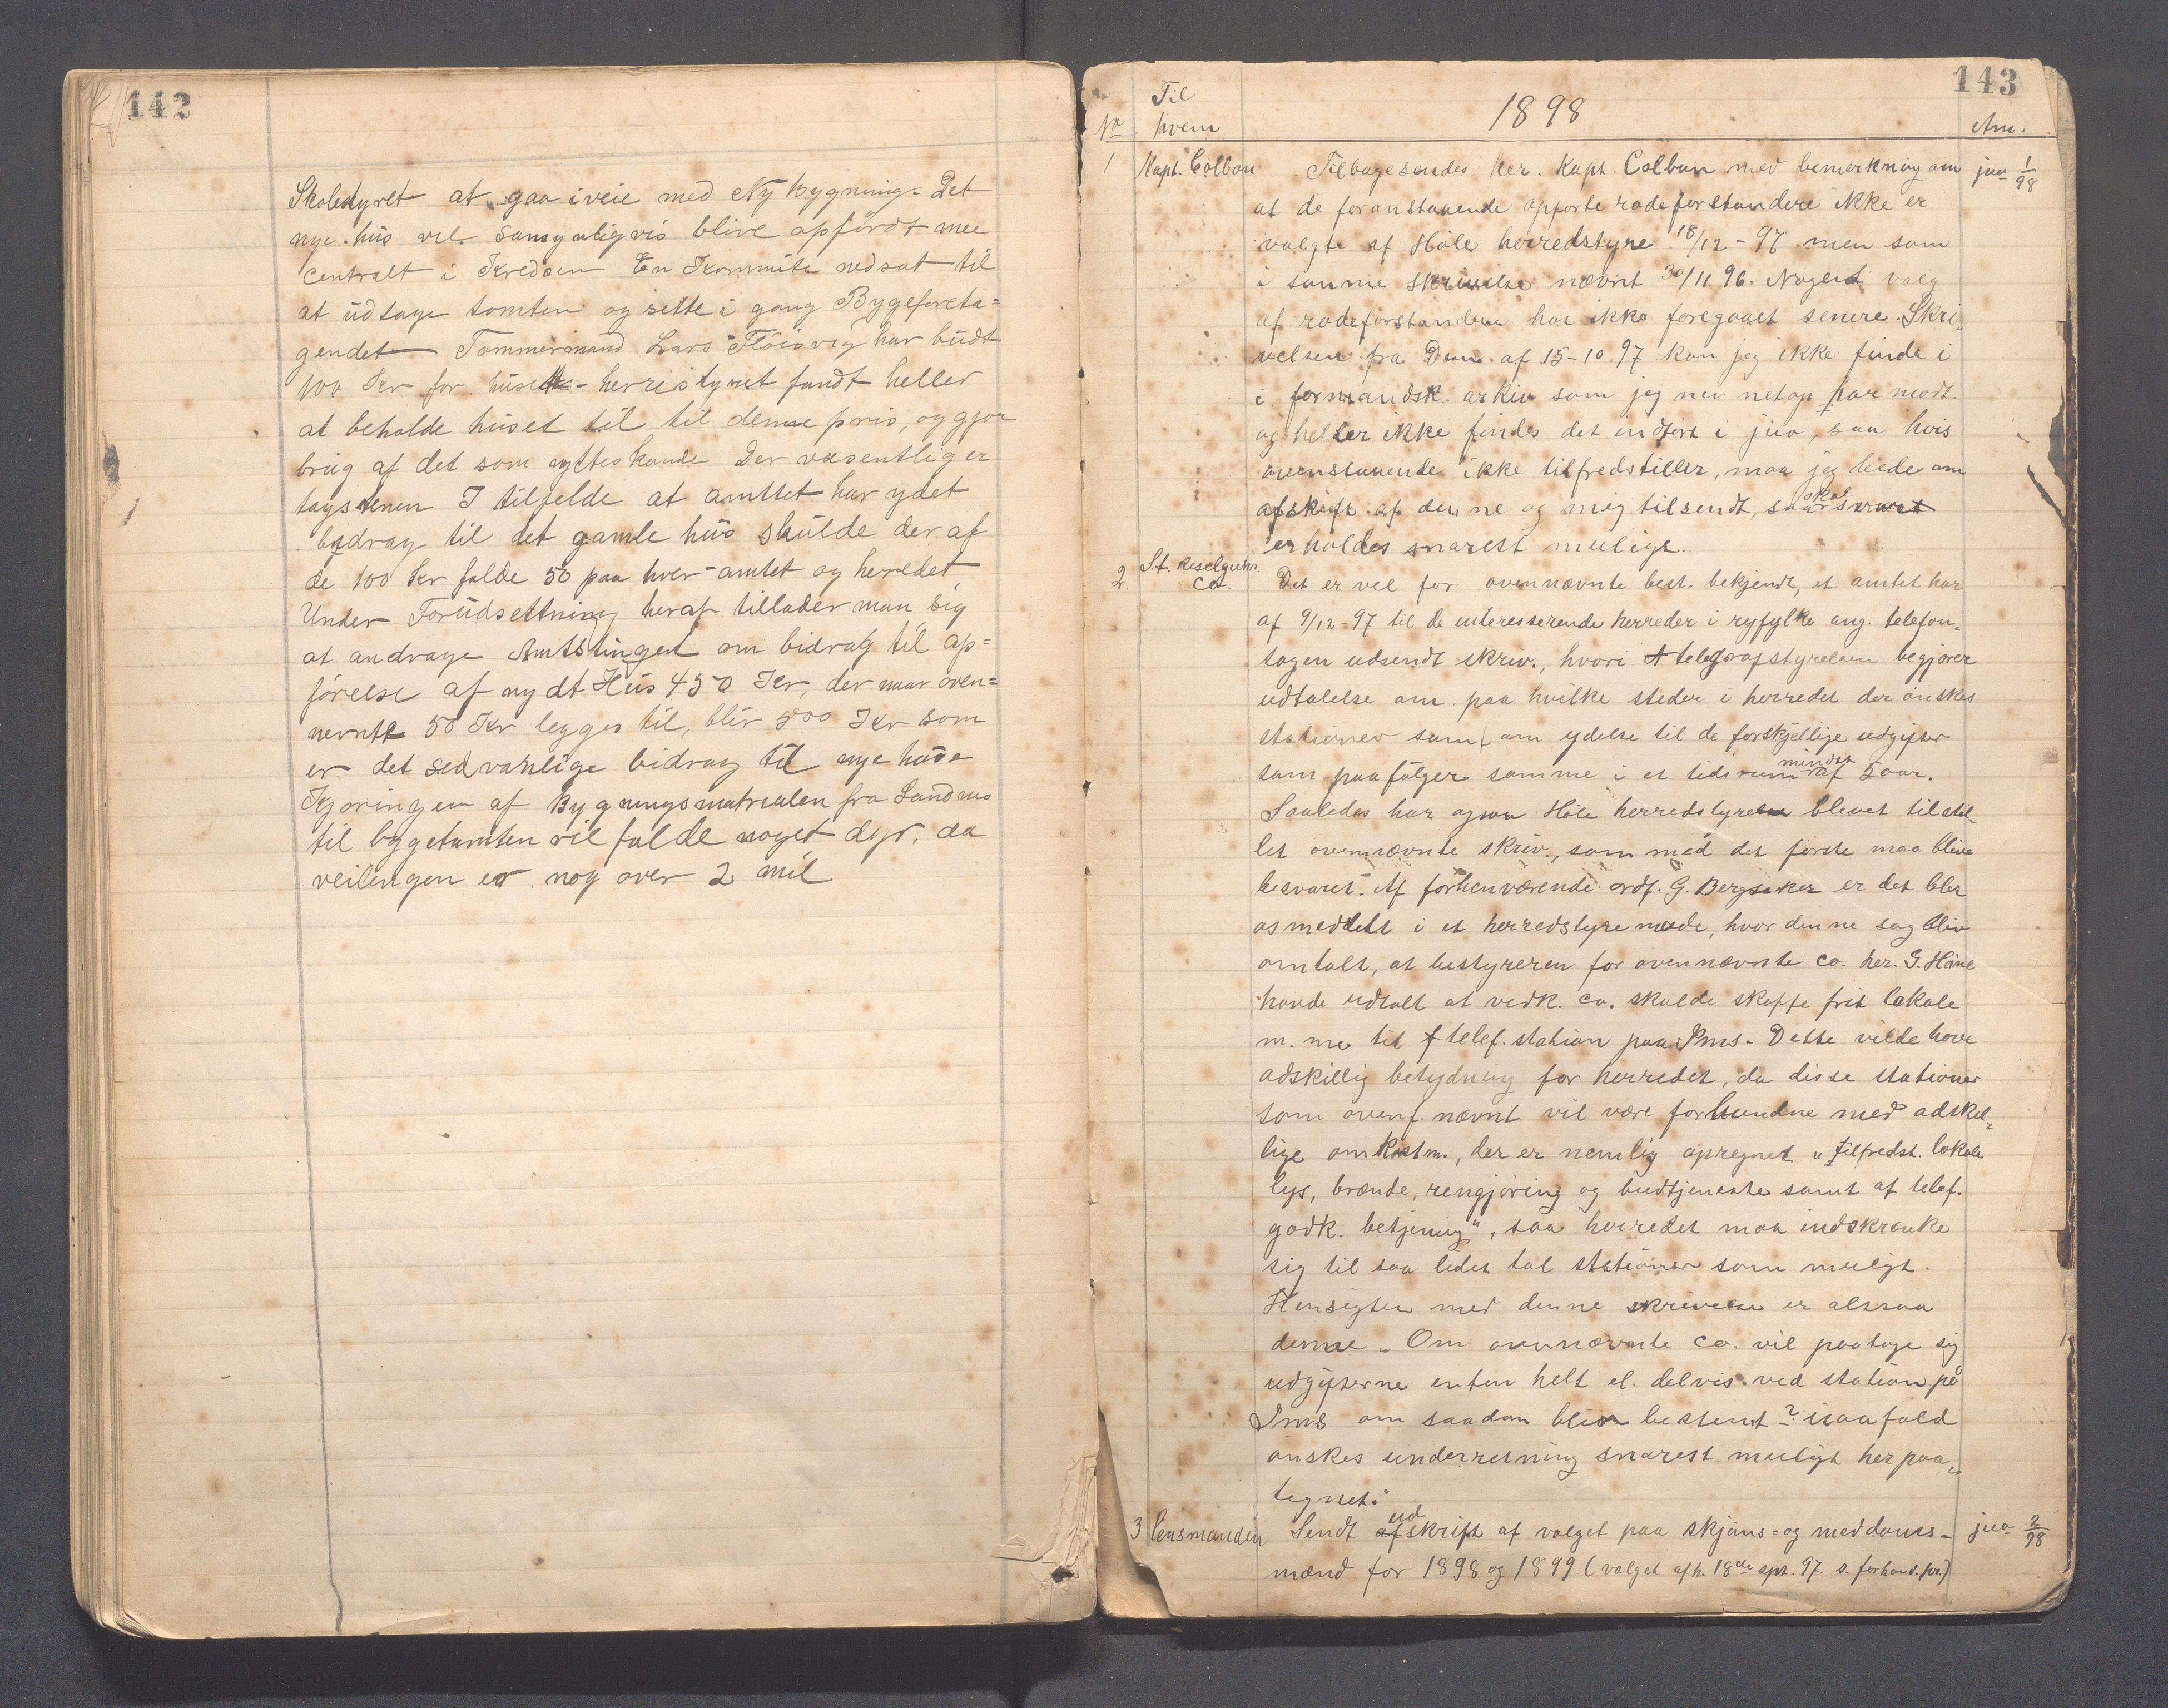 142
Skolestyret at gaa iveie med Ny Bygning. Det
nye hus vil sansynligvis blive opfördt mee
centralt i Kredsen En Kommite nedsat til
at udtage tomten og sette i gang Bygeforeta=
gendet Tømmermand Lars Flöisvig har budt
100 Kr for huset - herristyret fandt heller
at beholde huset til til denne pris, og gjøre
brug af det som nyttes kande Der væsentlig er
tagstenen I tilfelde at amttet har ydet
bidrag til det gamle hus skulde der af
de 100 Kr falde 50 paa hver - amtet og herredet
Under Forudsettning heraf tillader man sig
at andrage Amtstinget om bidrag til op=
förelse af nydt Hus 450 Kr, der naar oven=
nevnte 50 Kr legges til, blir 500 Kr som
er det sedvanlige bidrag til nye huse
Kjøringen af Bygningsmatrialen fra Landnes
til bygetomten vil falde noget dyr, da
veilengen er nog over 2 mil
143
Til
No hvem 1898 Anm.
1 Kapt. Colban Tilbagesendes her. Kapt. Colban med bemerkning om jno 1/98
at de foranstaaende opførte rodeforstandere ikke er
valgte af Höle herredstyre 18/12-97 men som
i samme skrivelse nævnt 30/11 96. Noget valg
af rodeforstandere har ikke foregaaet senere. Skri„
velsen fra Dem af 15-10 97 kan jeg ikke finde i
i formandsk. arkiv som jeg nu netop har modt.
og heller ikke findes det indført i jno, saa hvis
ovenstaaende ikke tilfredstiller, maa jeg bede om
afskift af denne og mig tilsendt, saa skal svaret
erholdes snarest muligt.
2. St. Kiselguhr. Co. Det er vel for ovennævnte best. bekjendt, at amtet har
af 9/12-97 til de interesserende herreder i ryfylke ang. telefon„
sagen udsendt skriv., hvori telegrafstyrelsen begjærer
udtalelse om paa hvilke steder i herredet der önskes
stationer samt om ydelse til de forskjellige udgifter
som paafölger samme i et tidsrum mindst af 5 aar.
Saaledes har ogsaa Höle herredstyre blevet tilstil„
let ovennævnte skriv., som med det förste maa blive
besvaret. Af forhenværende ordf. G. Bergsaker er det blet
os meddelt i et herredstyremøde, hvor denne sag blev
omtalt, at bestyreren for ovennævnte Co. her. G. Höine
havde udtalt at vedk. Co. skulde skaffe frit lokale
m. me til telef. station paa Ims. Dette vilde have
adskillig betydning for herredet, da disse stationer
som ovenf. nævnt vil være forbundne med adskil„
lige omkostn., der er nemlig opregnet „tilfredst. lokale
lys, brænde, rengjöring og budtjeneste samt af telef.
godk. betjening", saa herredet maa indskrænke
sig til saa lidet tal stationer som muligt.
Hensigten med denne skrivelse er altsaa
denne „Om ovennævnte Co. vil paatage sig
udgifterne enten helt el. delvis ved station på
Ims om saadan blir bestemt? isaafald
önskes underretning snarest muligt herpaa„
tegnet."
3 Lensmanden Sendt udskrift af valget paa skjöns- og meddoms- jno 2/98
mænd for 1898 og 1899. (valget afh. 18de spt. 97 s. forhand.pr.)